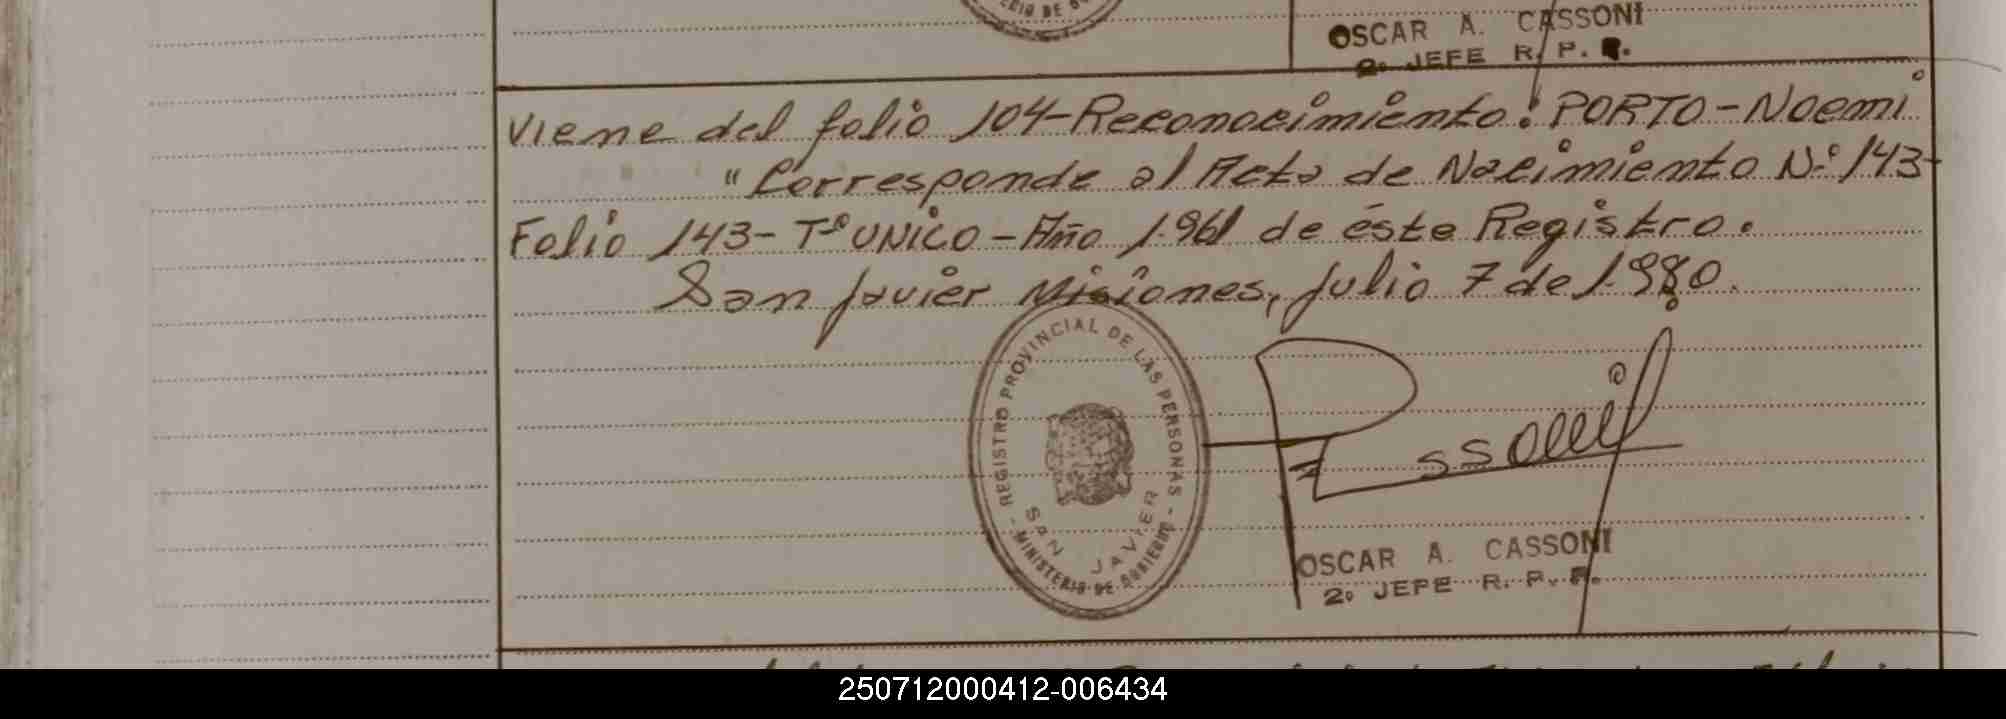 OSCAR A. CASSONI
2º JEFE R. P.
Viene del folio 104-Reconocimiento: PORTO-Noemi
"Corresponde al Acta de Nacimiento Nº 143-
Folio 143- Tº UNICO - Año 1.961 de éste Registro.
San Javier Misiones, Julio 7 de 1.980.
REGISTRO PROVINCIAL DE LAS PERSONAS
SAN JAVIER
- MINISTERIO DE GOBIERNO -
OSCAR A. CASSONI
2º JEFE R. P.
250712000412-006434